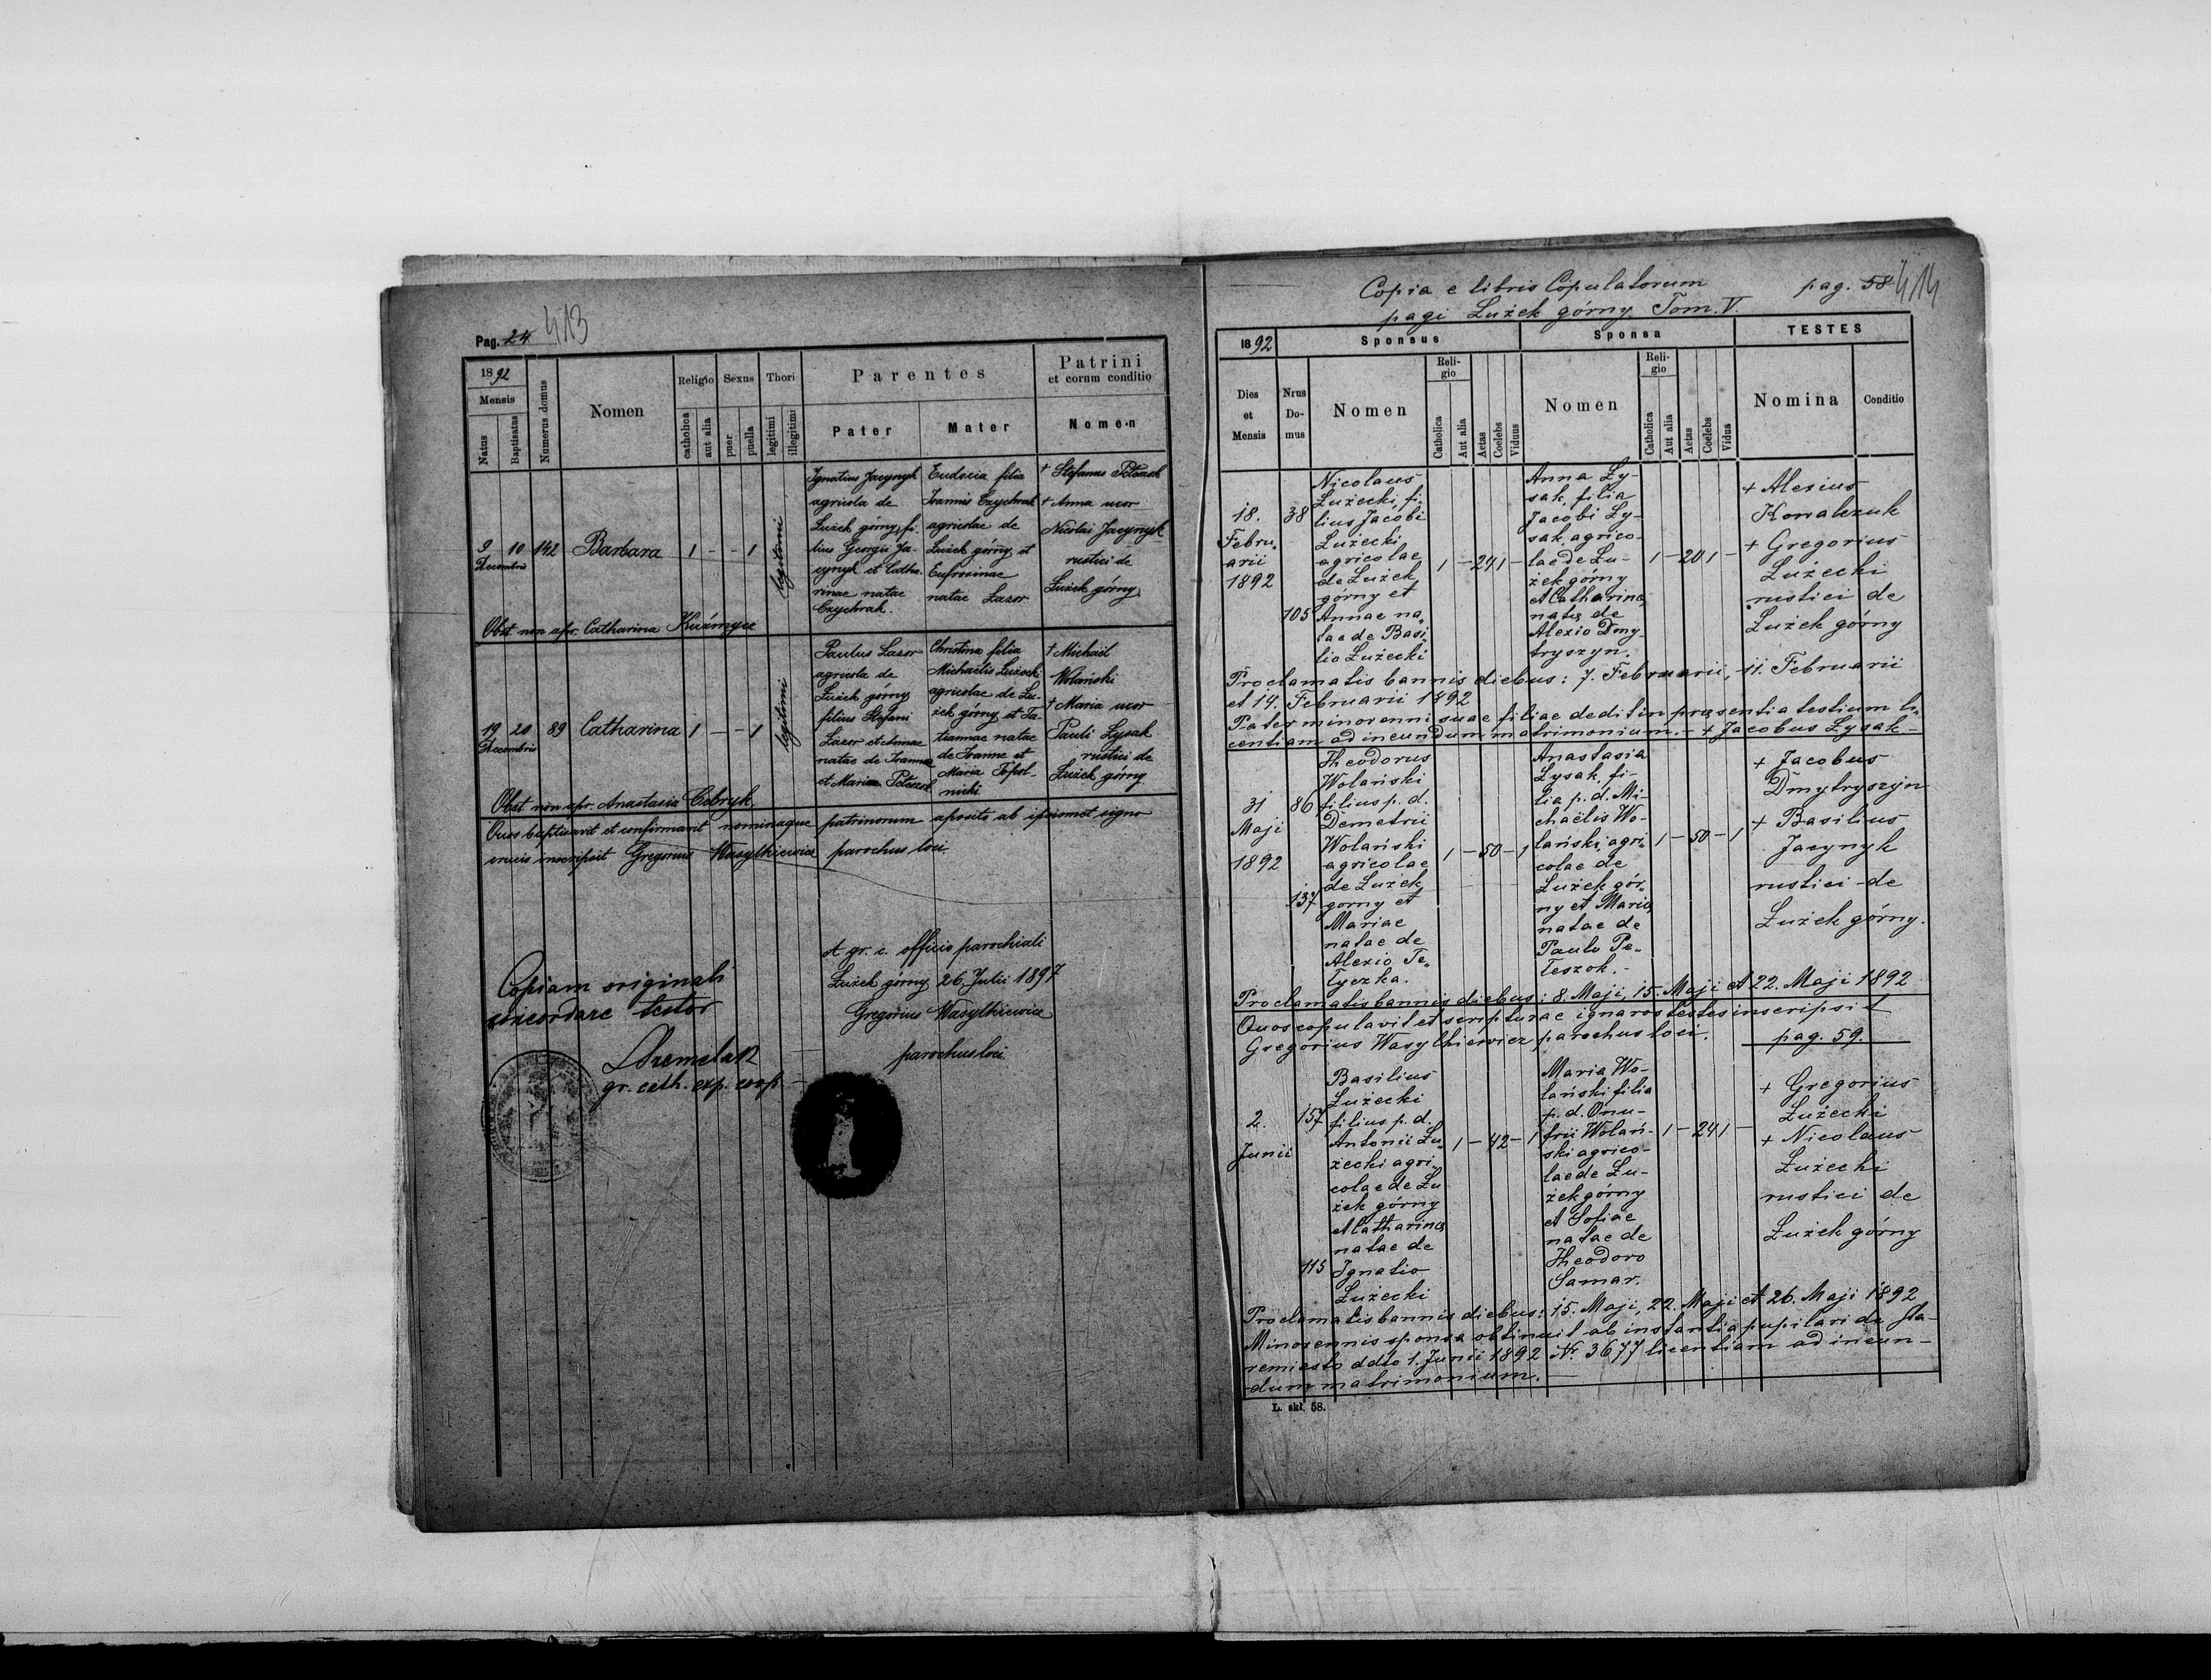 Pag. 24 413
18 92
Mensis
Natus
Baptisatus
Numerus domus
Nomen
Religio
catholica
aut alia
Sexus
puer
puella
Thori
legitimi
illegitimi
Parentes
Pater
Mater
Patrini
et eorum conditio
Nomen
9 10 142 Barbara 1 - - 1 legitimi
Decembris
Ignatius Jacynyk
agricola de
Łużek górny, fi-
lius Georgii Ja-
cynyk et Catha-
rinae natae
Czychrak.
Eudoxia filia
Joannis Czychrak
agricolae de
Łużek górny et
Eufrosinae
natae Lazor
† Stefanus Peteszok
† Anna uxor
Nicolai Jacynyk
rustici de
Łużek górny
Obst. non apr. Catharina Kuźmycz
19 20 89 Catharina 1 - - 1 legitimi
Decembris
Paulus Lazor
agricola de
Łużek górny
filius Stefani
Lazor et Annae
natae de Joanne
et Maria Peteszok
Christina filia
Michaëlis Łużecki
agricolae de Łu-
żek górny et Ta-
tiannae natae
de Joanne et
Maria Topol-
nicki
† Michaël
Wolański
† Maria uxor
Pauli Łysak
rustici de
Łużek górny
Obst. non apr. Anastasia Cebryk.
Quos baptisavit et confirmavit nominaque patrinorum aposito ab ipsismet signo
crucis inscripsit Gregorius Wasylkiewicz parochus loci.
A gr. c. officio parochiali
Łużek górny 26 Julii 1897
Gregorius Wasylkiewicz
parochus loci
Copiam originali
concordare testor
gr. cath. exp. coop.
Copia e libris Copulatorum pag. 58 414
pagi Łużek górny Tom. V.
18 92
Dies
et
Mensis
Nrus
Do-
mus
Sponsus
Nomen
Reli-
gio
Catholica
Aut alia
Aetas
Coelebs
Viduus
Sponsa
Nomen
Reli-
gio
Catholica
Aut alia
Aetas
Coelebs
Vidua
TESTES
Nomina
Conditio
18.
Febru„
arii
1892
38
105
Nicolaus
Łużecki, fi„
lius Jacobi
Łużecki
agricolae
de Łużek
górny et
Annae na„
tae de Basi„
lio Łużecki
1 - 24 1 -
Anna Ły-
sak, filia
Jacobi Ły-
sak, agrico-
lae de Łu-
żek górny
et Catharinae
natae de
Alexio Dmy-
tryszyn.
1 - 20 1 -
+ Alexius
Kowalczuk
+ Gregorius
Łużecki
rustici de
Łużek górny
Proclamatis bannis diebus: 7. Februarii, 11. Februarii
et 14. Februarii 1892
Pater minorenni suae filiae dedit in praesentia testium li„
centiam ad ineundum matrimonium. - + Jacobus Łysak -
31
Maji
1892
86
137
Theodorus
Wolański
filius p. d.
Demetrii
Wolański
agricolae
de Łużek
gorny et
Mariae
natae de
Alexio Te„
tyczka.
1 - 50 - 1
Anastasia
Łysak, fi-
lia p. d. Mi-
chaëlis Wo-
lański, agri„
colae de
Łużek gór„
ny et Mariae
natae de
Paulo Pe„
teszok. -
1 - 50 - 1
+ Jacobus
Dmytryszyn
+ Basilius
Jacynyk
rustici de
Łużek górny.
Proclamatis bannis diebus: 8. Maji, 15. Maji et 22. Maji 1892
Quos copulavit et scripturae ignaros testes inscripsit
Gregorius Wasylkiewicz parochus loci.
pag. 59.
2.
Junii
157
115
Basilius
Łużecki
filius p. d.
Antonii Łu„
żecki agri„
colae de Łu
żek górny
et Catharinae
natae de
Ignatio
Łużecki
1 - 42 - 1
Maria Wo-
lański filia
p. d. Onu-
frii Wolań-
ski agrico-
lae de Łu-
żek górny
et Sofiae
natae de
Theodoro
Samar.
1 - 24 1 -
+ Gregorius
Łużecki
+ Nicolaus
Łużecki
rustici de
Łużek górny
Proclamatis bannis diebus: 15. Maji, 22. Maji et 26. Maji 1892
Minorennis sponsa obtinuit ab instantia pupilari de Sta-
remiasto ddto 1. Junii 1892 Nr. 3677 licentiam ad ineun-
dum matrimonium. -
L. skł. 58.